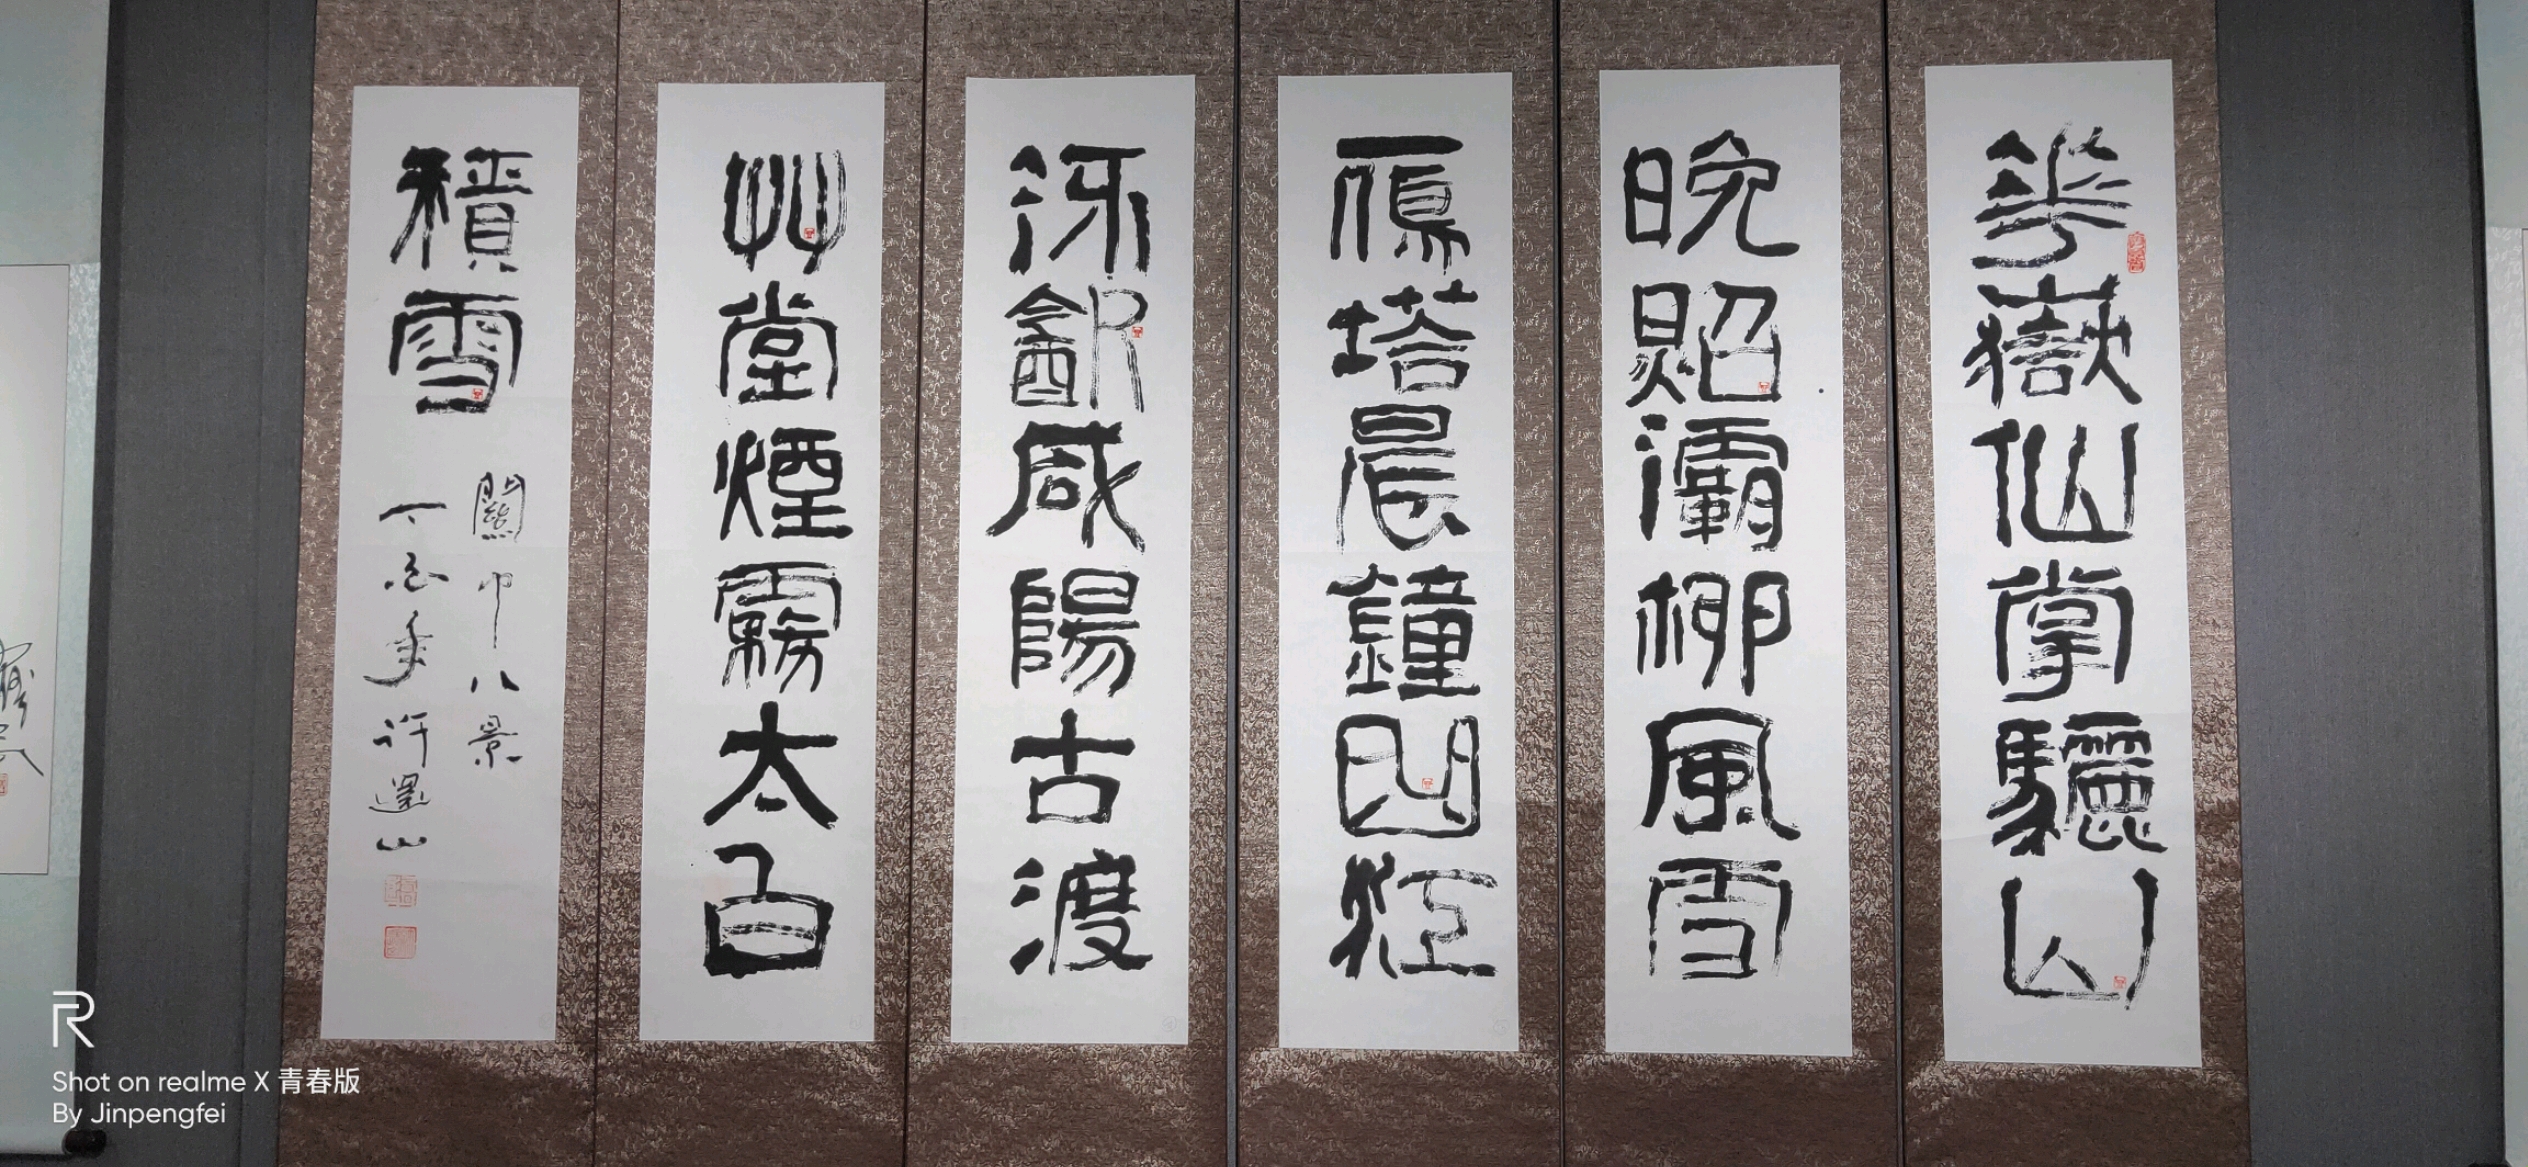 華嶽仙掌驪山
晚照灞柳風雪
鴈塔晨鐘曲江
流飲咸陽古渡
艸堂煙霧太白
積雪
關中八景
丁酉年許還山
Shot on realme X 青春版
By Jinpengfei